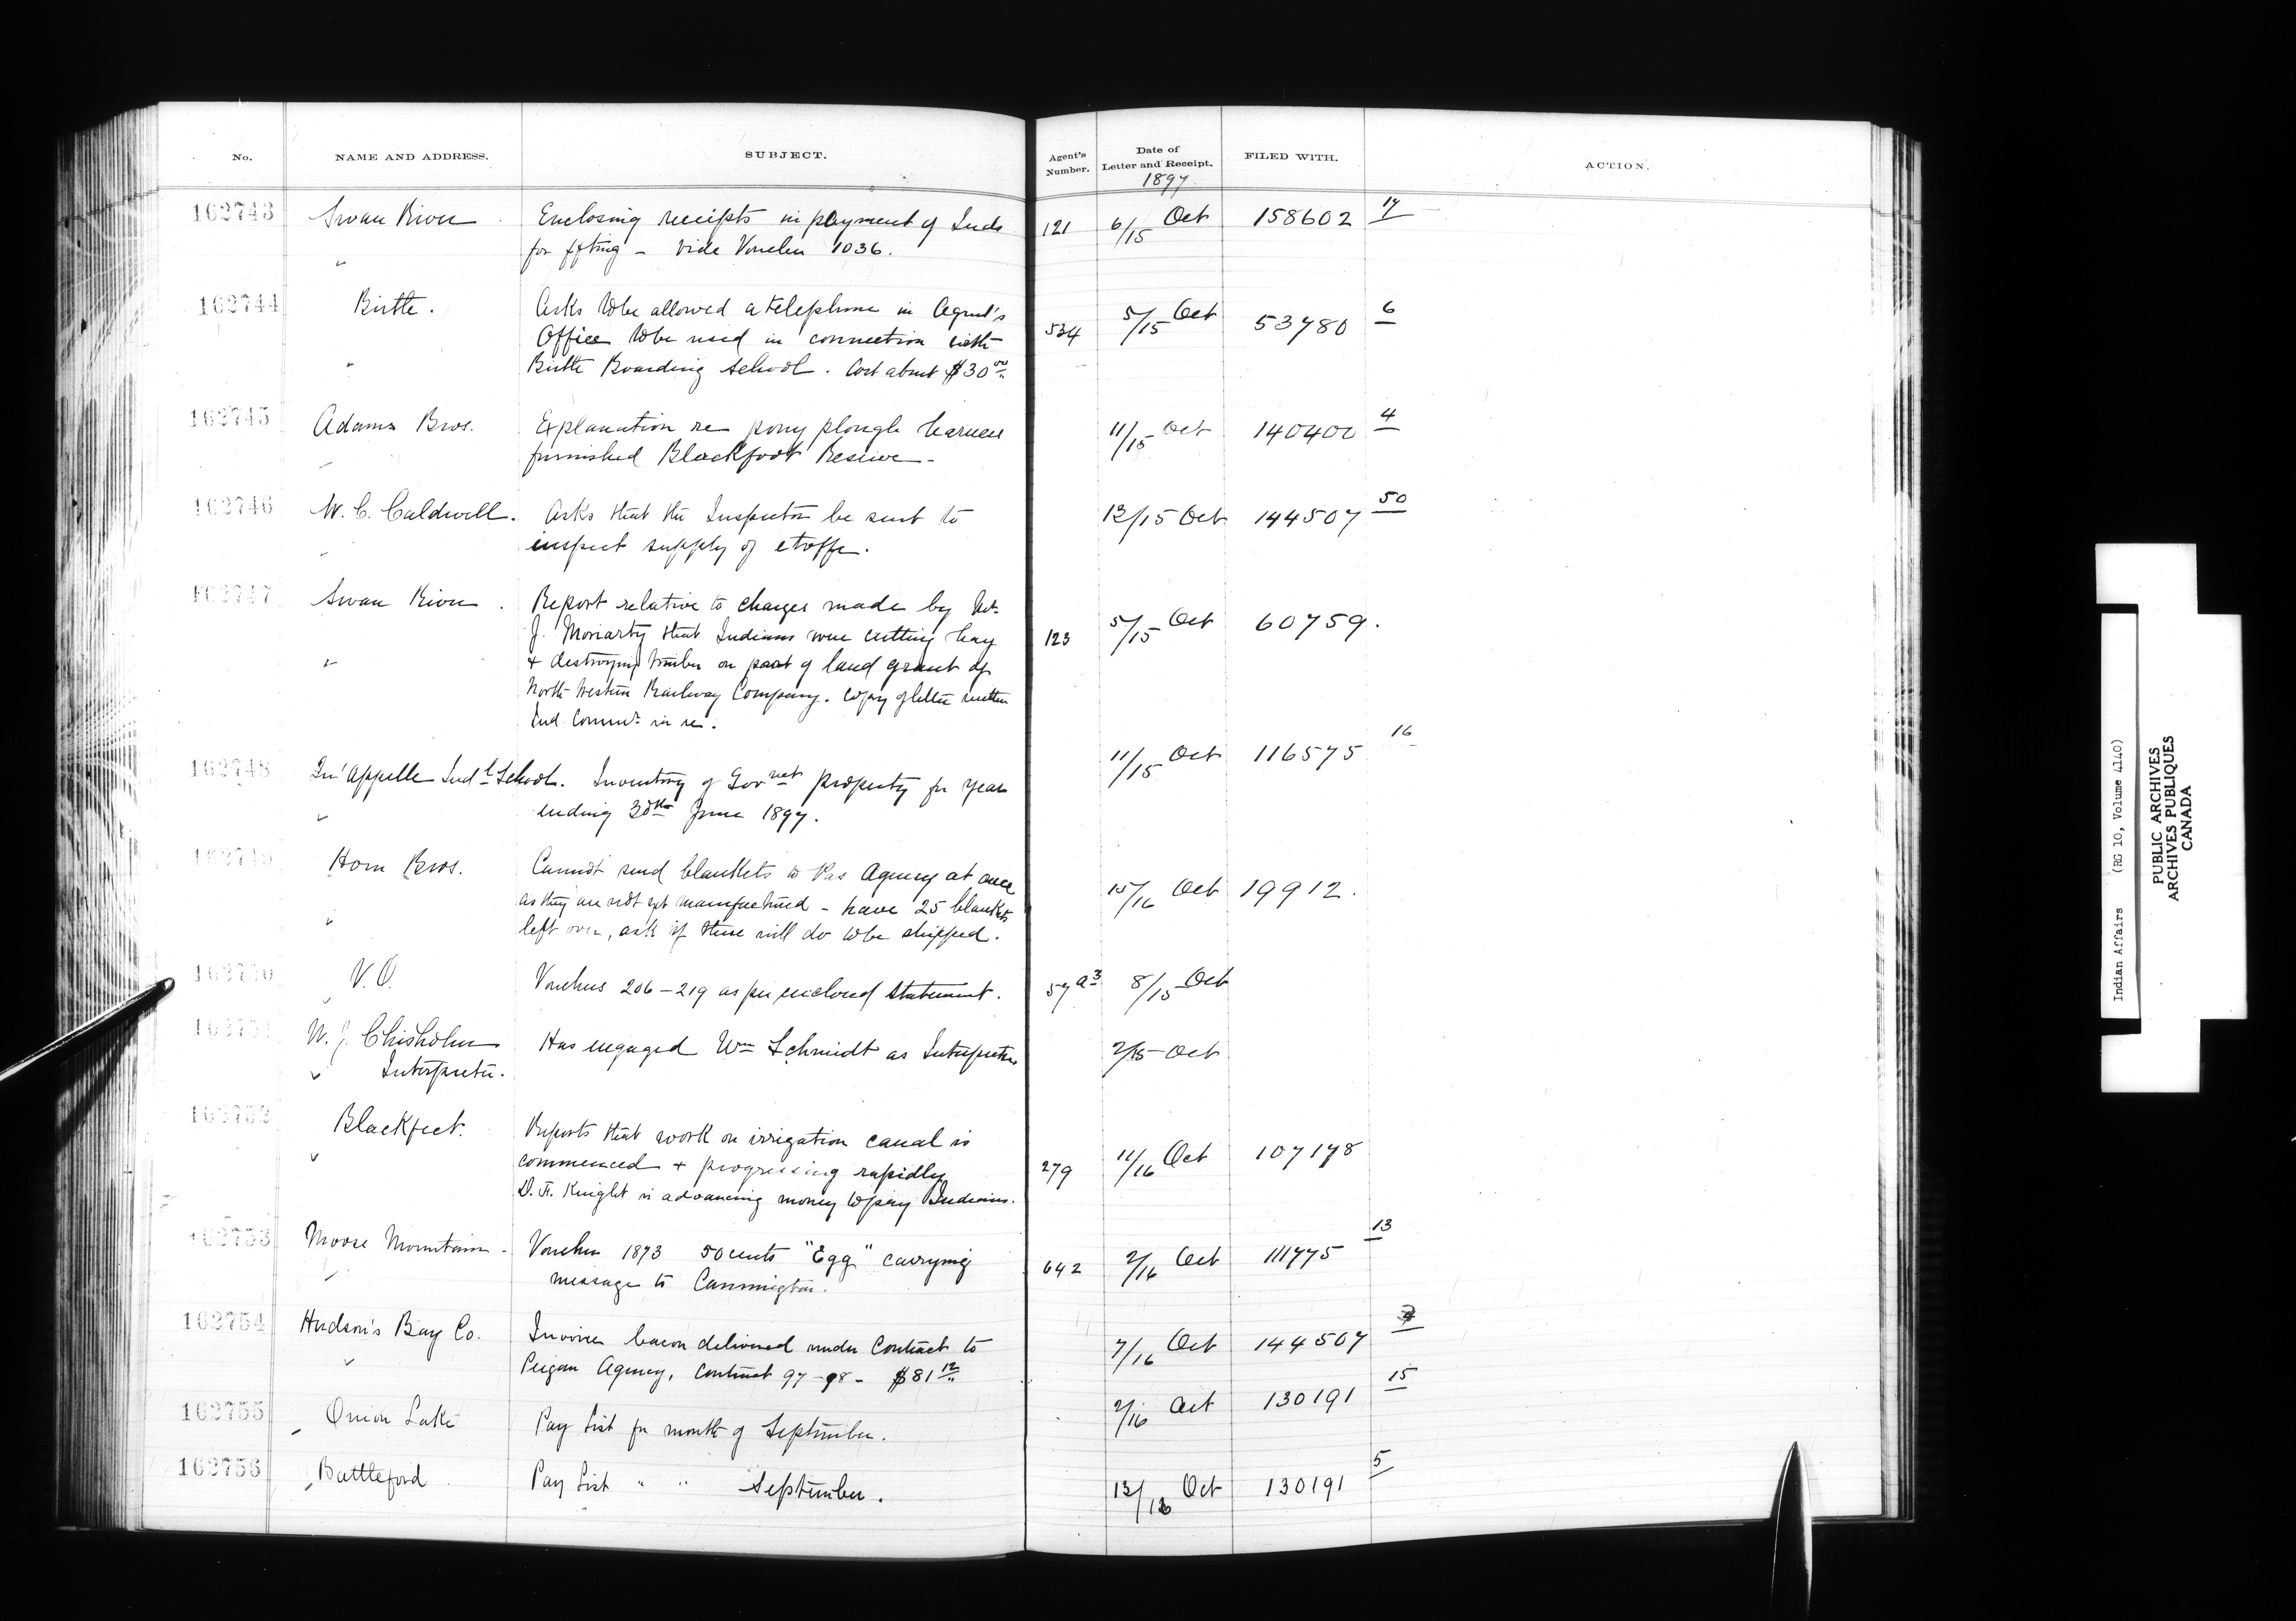 No. NAME AND ADDRESS. SUBJECT. Agent's Number. Date of Letter and Receipt. FILED WITH. ACTION.
1897
162743 Swan River Enclosing receipts in payment of Inds 121 6/15 Oct 158602 17
for ffting - vide Voucher 1036.
162744 Birtle. Asks to be allowed a telephone in Agent's 534 5/15 Oct 53780 6
Office to be used in connection with
Birtle Boarding School. Cost about $30 00
162745 Adams Bros. Explanation re pony plough harness 11/15 Oct 140400 4
furnished Blackfoot Reserve -
162746 W. C. Caldwell. Asks that the Inspector be sent to 12/15 Oct 144507 50
inspect supply of etoffe.
162747 Swan River. Report relative to charges made by
J. Moriarty that Indians were cutting hay 123 5/15 Oct 60759.
+ destroying timber on part of land grant of
North Western Railway Company. Copy of letter written
Ind. Commr. in re.
162748 Qu'Appelle Indl School. Inventory of Govnet property for year 11/15 Oct 116575 16
ending 30th June 1897.
162749 Horn Bros. Cannot send blankets to Pas Agency at once
as they are not yet manufactured - have 25 blankets 15/16 Oct 19912.
left over, ask if these will do to be shipped.
162750 V.O. Vouchers 206 - 219 as per enclosed statement. 57 a3 8/15 Oct
162751 W. J. Chisholm Has engaged Wm Schmidt as Interpreter 2/15 Oct
Interpreter.
162752 Blackfeet. Reports that work on irrigation canal is
commenced + progressing rapidly 279 11/16 Oct 107178
D. F. Knight is advancing money to pay Indians.
162753 Moose Mountain - Voucher 1873 50 cents "Egg" carrying 642 2/16 Oct 111775 13
message to Cannington.
162754 Hudson's Bay Co. Invoice bacon delivered under Contract to 7/16 Oct 144507
Peigan Agency, Contract 97-98 - $81 12
162755 Onion Lake Pay List for month of September. 2/16 Oct 130191 15
162756 Battleford Pay List " " September. 12/16 Oct 130191 5
Indian Affairs (RG 10, Volume 4140)
PUBLIC ARCHIVES
ARCHIVES PUBLIQUES
CANADA